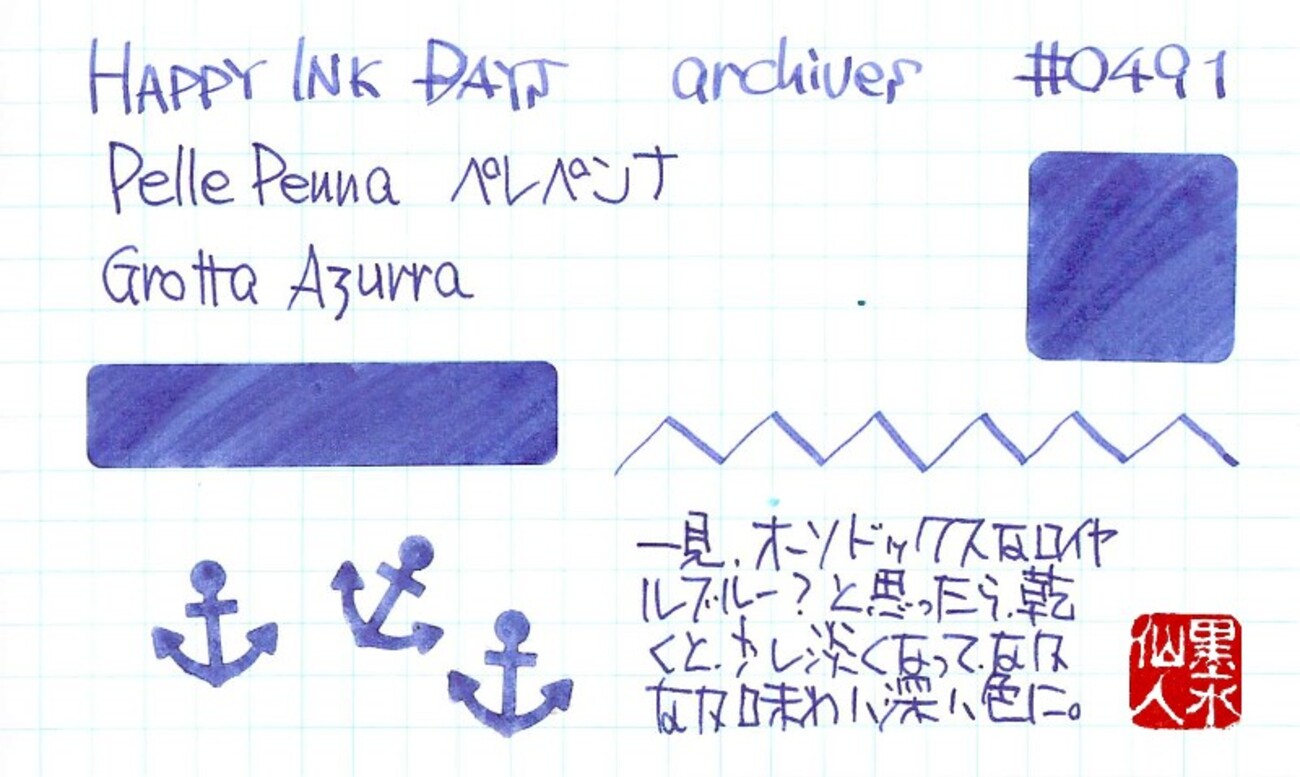 HAPPY INK DAYS archives #0491
Pelle Penna ペレペンナ
Grotta Azurra
一見、オーソドックスなロイヤ
ルブルー？と思ったら、乾
くと、少し淡くなって、なか
なか味わい深い色に。
墨水
仙人